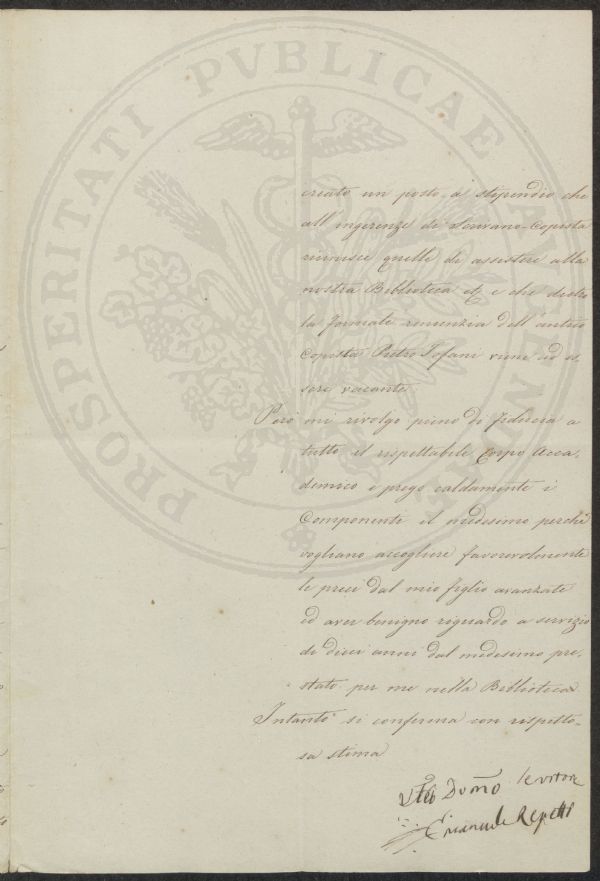 PROSPERITATI PVBLICAE AVGENDAE
creato un posto a stipendio che
all'ingerenze di Scrivano-Copista
riunisce quelle di assistere alla
nostra Biblioteca e che dietro
la formale renunzia dell'antico
Copista Pietro Tofani viene ad es,
sere vacante.
Però mi rivolgo pieno di fiducia a
tutto il rispettabile Corpo Acca,
demico e prego caldamente i
Componenti il medesimo perchè
vogliano accogliere favorevolmente
le preci dal mio figlio avanzate
ed aver benigno riguardo a servizio
di dieci anni dal medesimo pre,
stato per me nella Biblioteca
Intanto si conferma con rispetto,
sa stima
Servitore
Emanuele Repetti